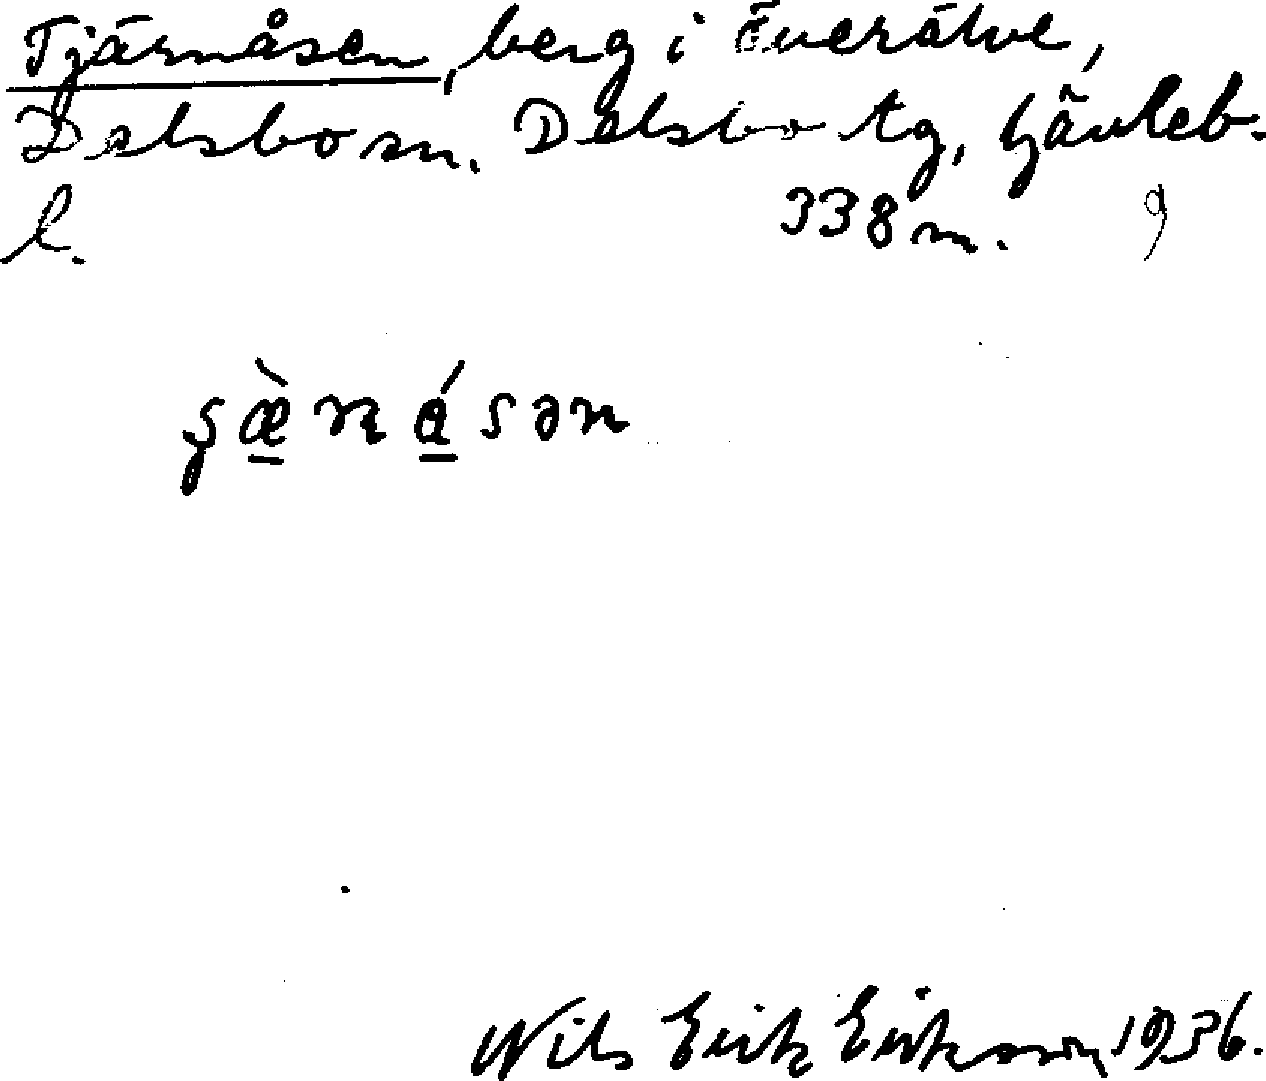 Tjärnåsen, berg i Överälve,
Delsbo sn. Delsbo tg, Gävleb.
l. 338 m. 9
Nils Erik Eriksson 1936.